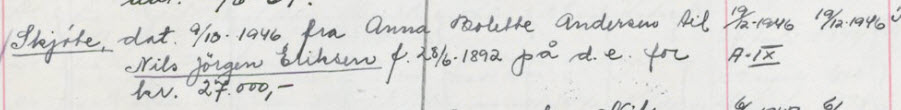 Skjöte, dat. 9/10-1946 fra Anna Bolette Andersen til 19/12-1946 19/12-1946
Nils Jörgen Eliksen f. 28/6-1892 på d.e. for A-IX
kr. 27.000,-